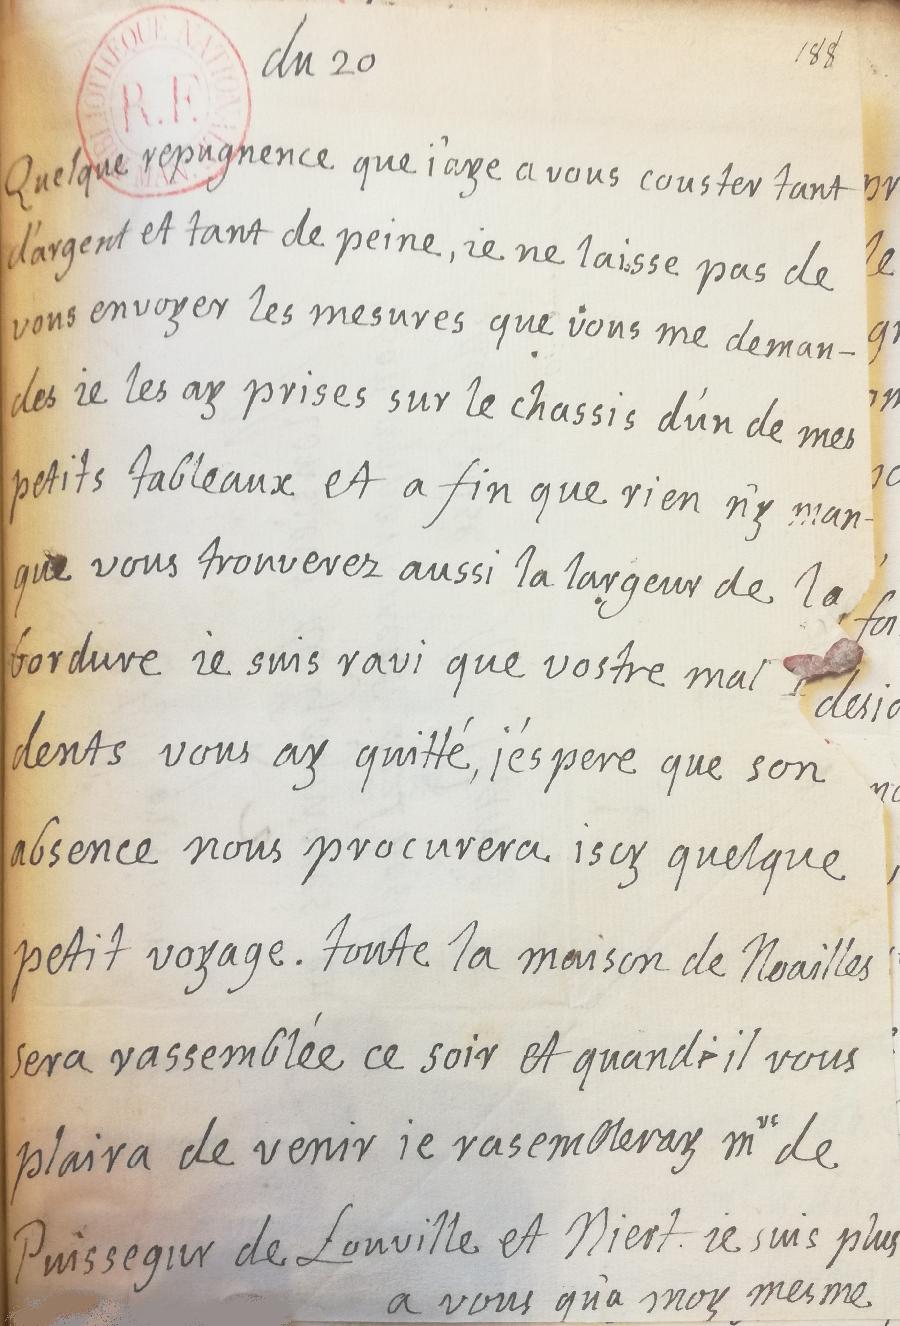 du 20
188
Quelque repugnence que i'aye a vous couster tant
d'argent et tant de peine, ie ne laisse pas de
vous envoyer les mesures que vous me deman-
des ie les ay prises sur le chassis d'un de mes
petits tableaux et a fin que rien n'y man-
que vous trouverez aussi la largeur de la
bordure ie suis ravi que vostre mal
dents vous ay quitté, j'éspere que son
absence nous procurera iscy quelque
petit voyage. toute la maison de Noailles
sera rassemblée ce soir et quand il vous
plaira de venir ie rasembleray mrs de
Puissegur de Louville et Niert. ie suis plus
a vous qu'a moy mesme
R.F.
BIBLIOTHEQUE NATIONALE
MAN.